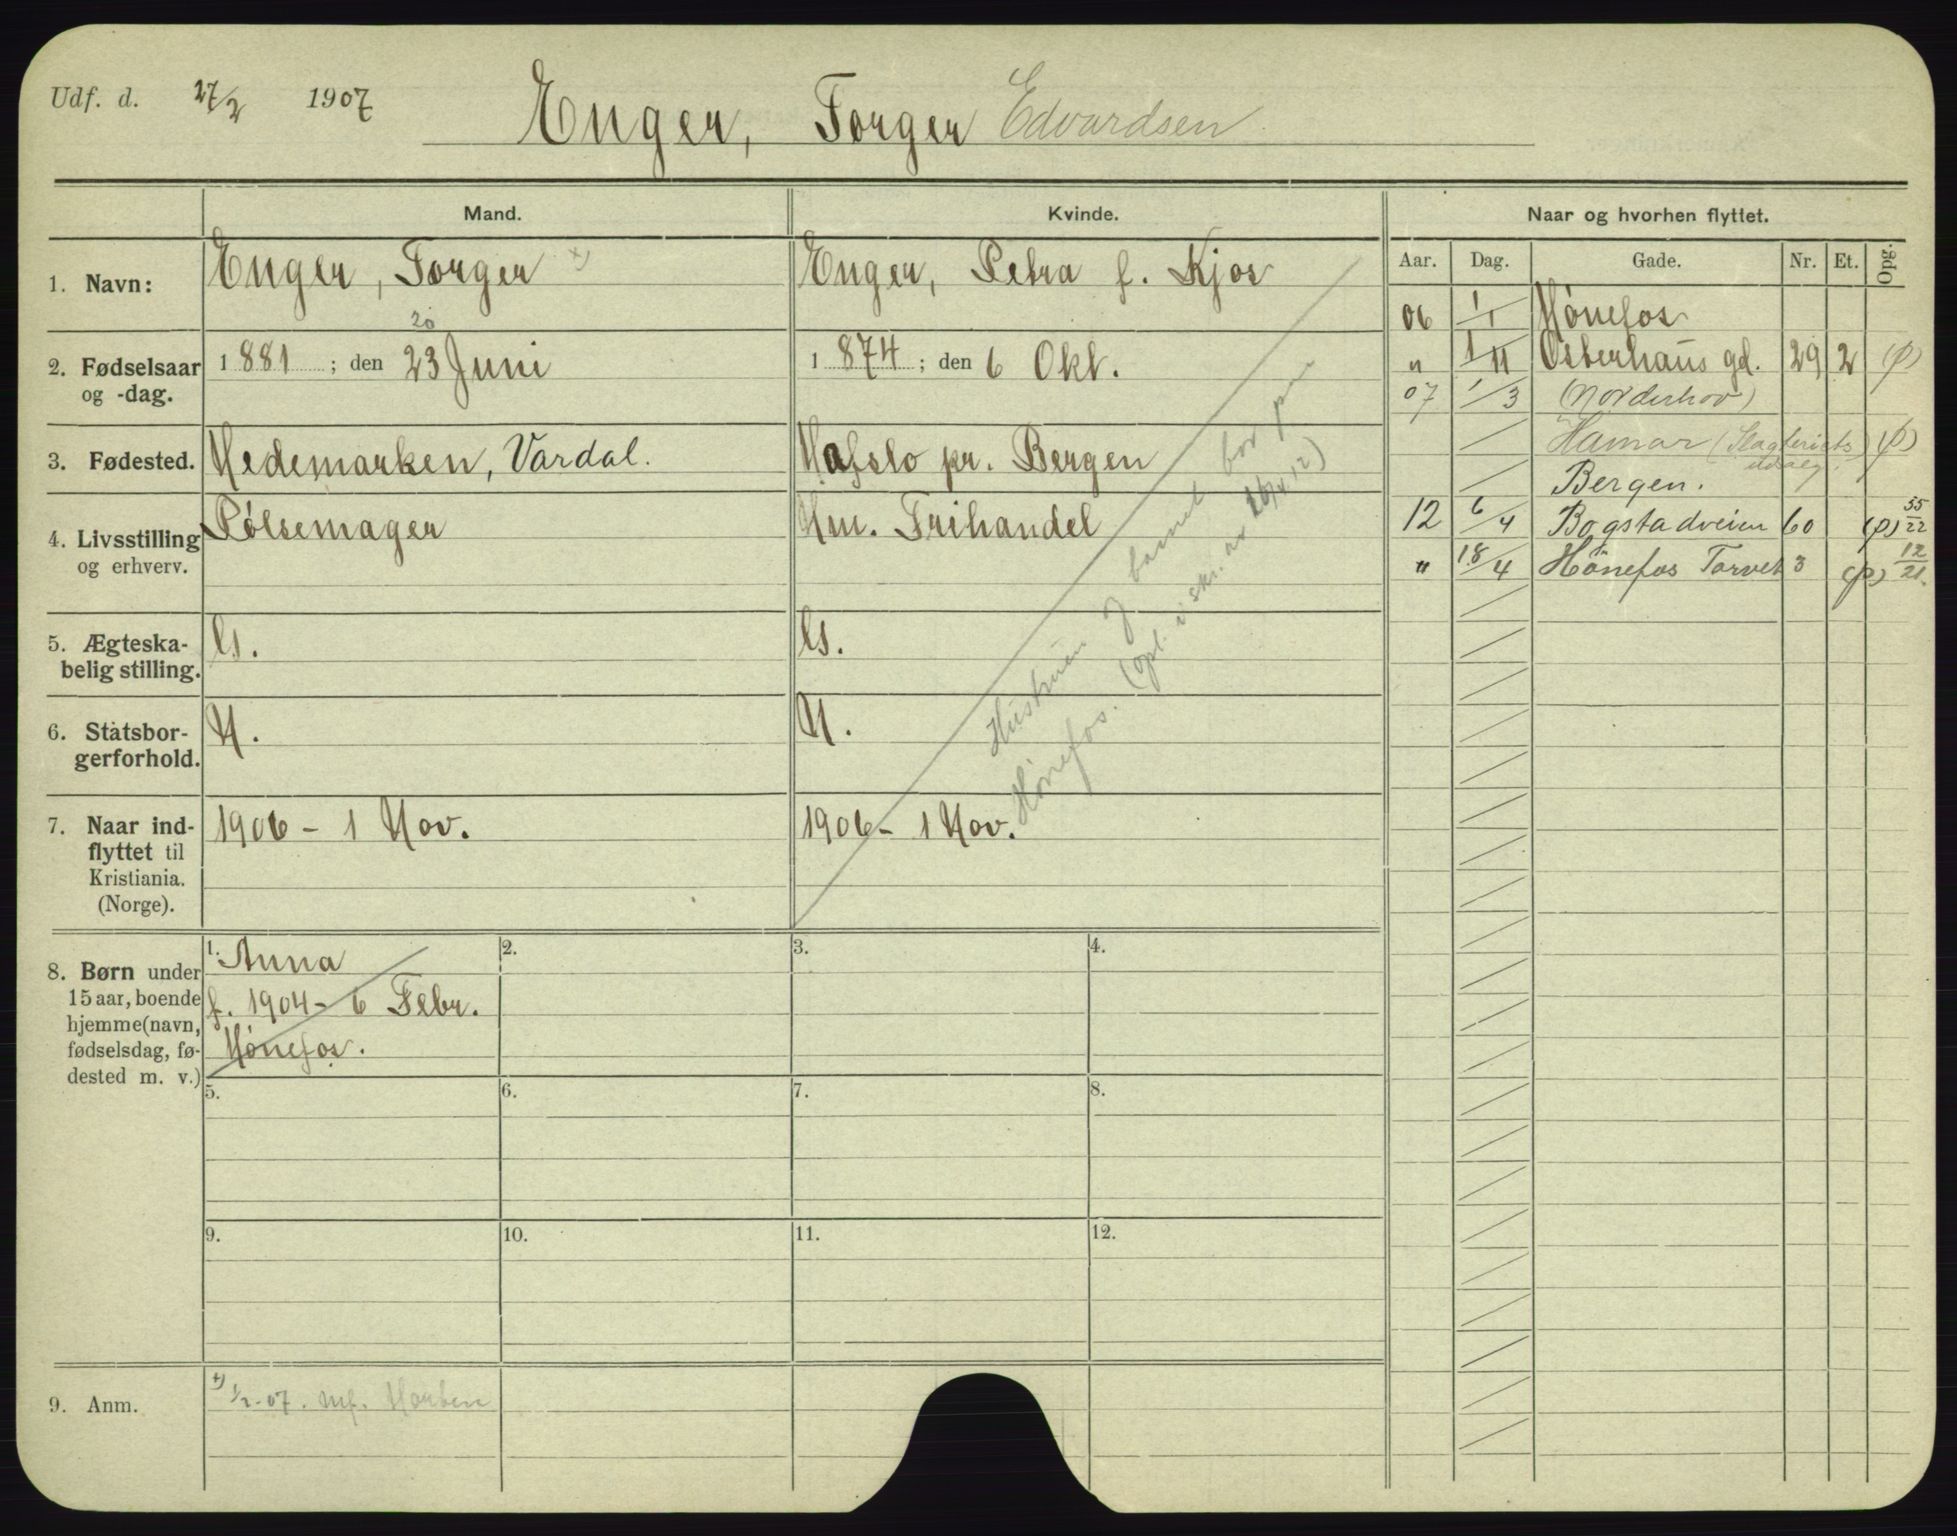 Udf. d. 27/2 1907
Enger, Torger Edvardsen
Mand. Kvinde. Naar og hvorhen flyttet.
Aar. Dag. Gade. Nr. Et. Opg.
1. Navn: Enger, Torger x) Enger, Petra f. Kjos
20
2. Fødselsaar og -dag. 1881; den 23 Juni 1874; den 6 Okt.
3. Fødested. Hedemarken, Vardal. Hafslo pr. Bergen
4. Livsstilling og erhverv. Pølsemager Hm. Frihandel
5. Ægteska-
belig stilling. G. G.
6. Statsbor-
gerforhold. N. N.
7. Naar ind-
flyttet til
Kristiania.
(Norge). 1906 - 1 Nov. 1906 - 1 Nov.
Hustruen og barnet bor paa
Hönefos. (opl. i skr. av 16/4 12)
8. Børn under
15 aar, boende
hjemme (navn,
fødselsdag, fø-
dested m. v.)
1. Anna
f. 1904 - 6 Febr.
Hönefos.
2.
3.
4.
5.
6.
7.
8.
9.
10.
11.
12.
9. Anm. x) 1/2-07. mf.
06 1/1 Hönefos
" 1/11 Osterhaus gd. 29 2 (p)
07 1/3 (Norderhov)
Hamar (Slagteriets (p)
udsalg)
Bergen.
12 6/4 Bogstadveien 60 (p) 55/22
" 18/4 Hönefos Torvet 3 (p) 12/21.